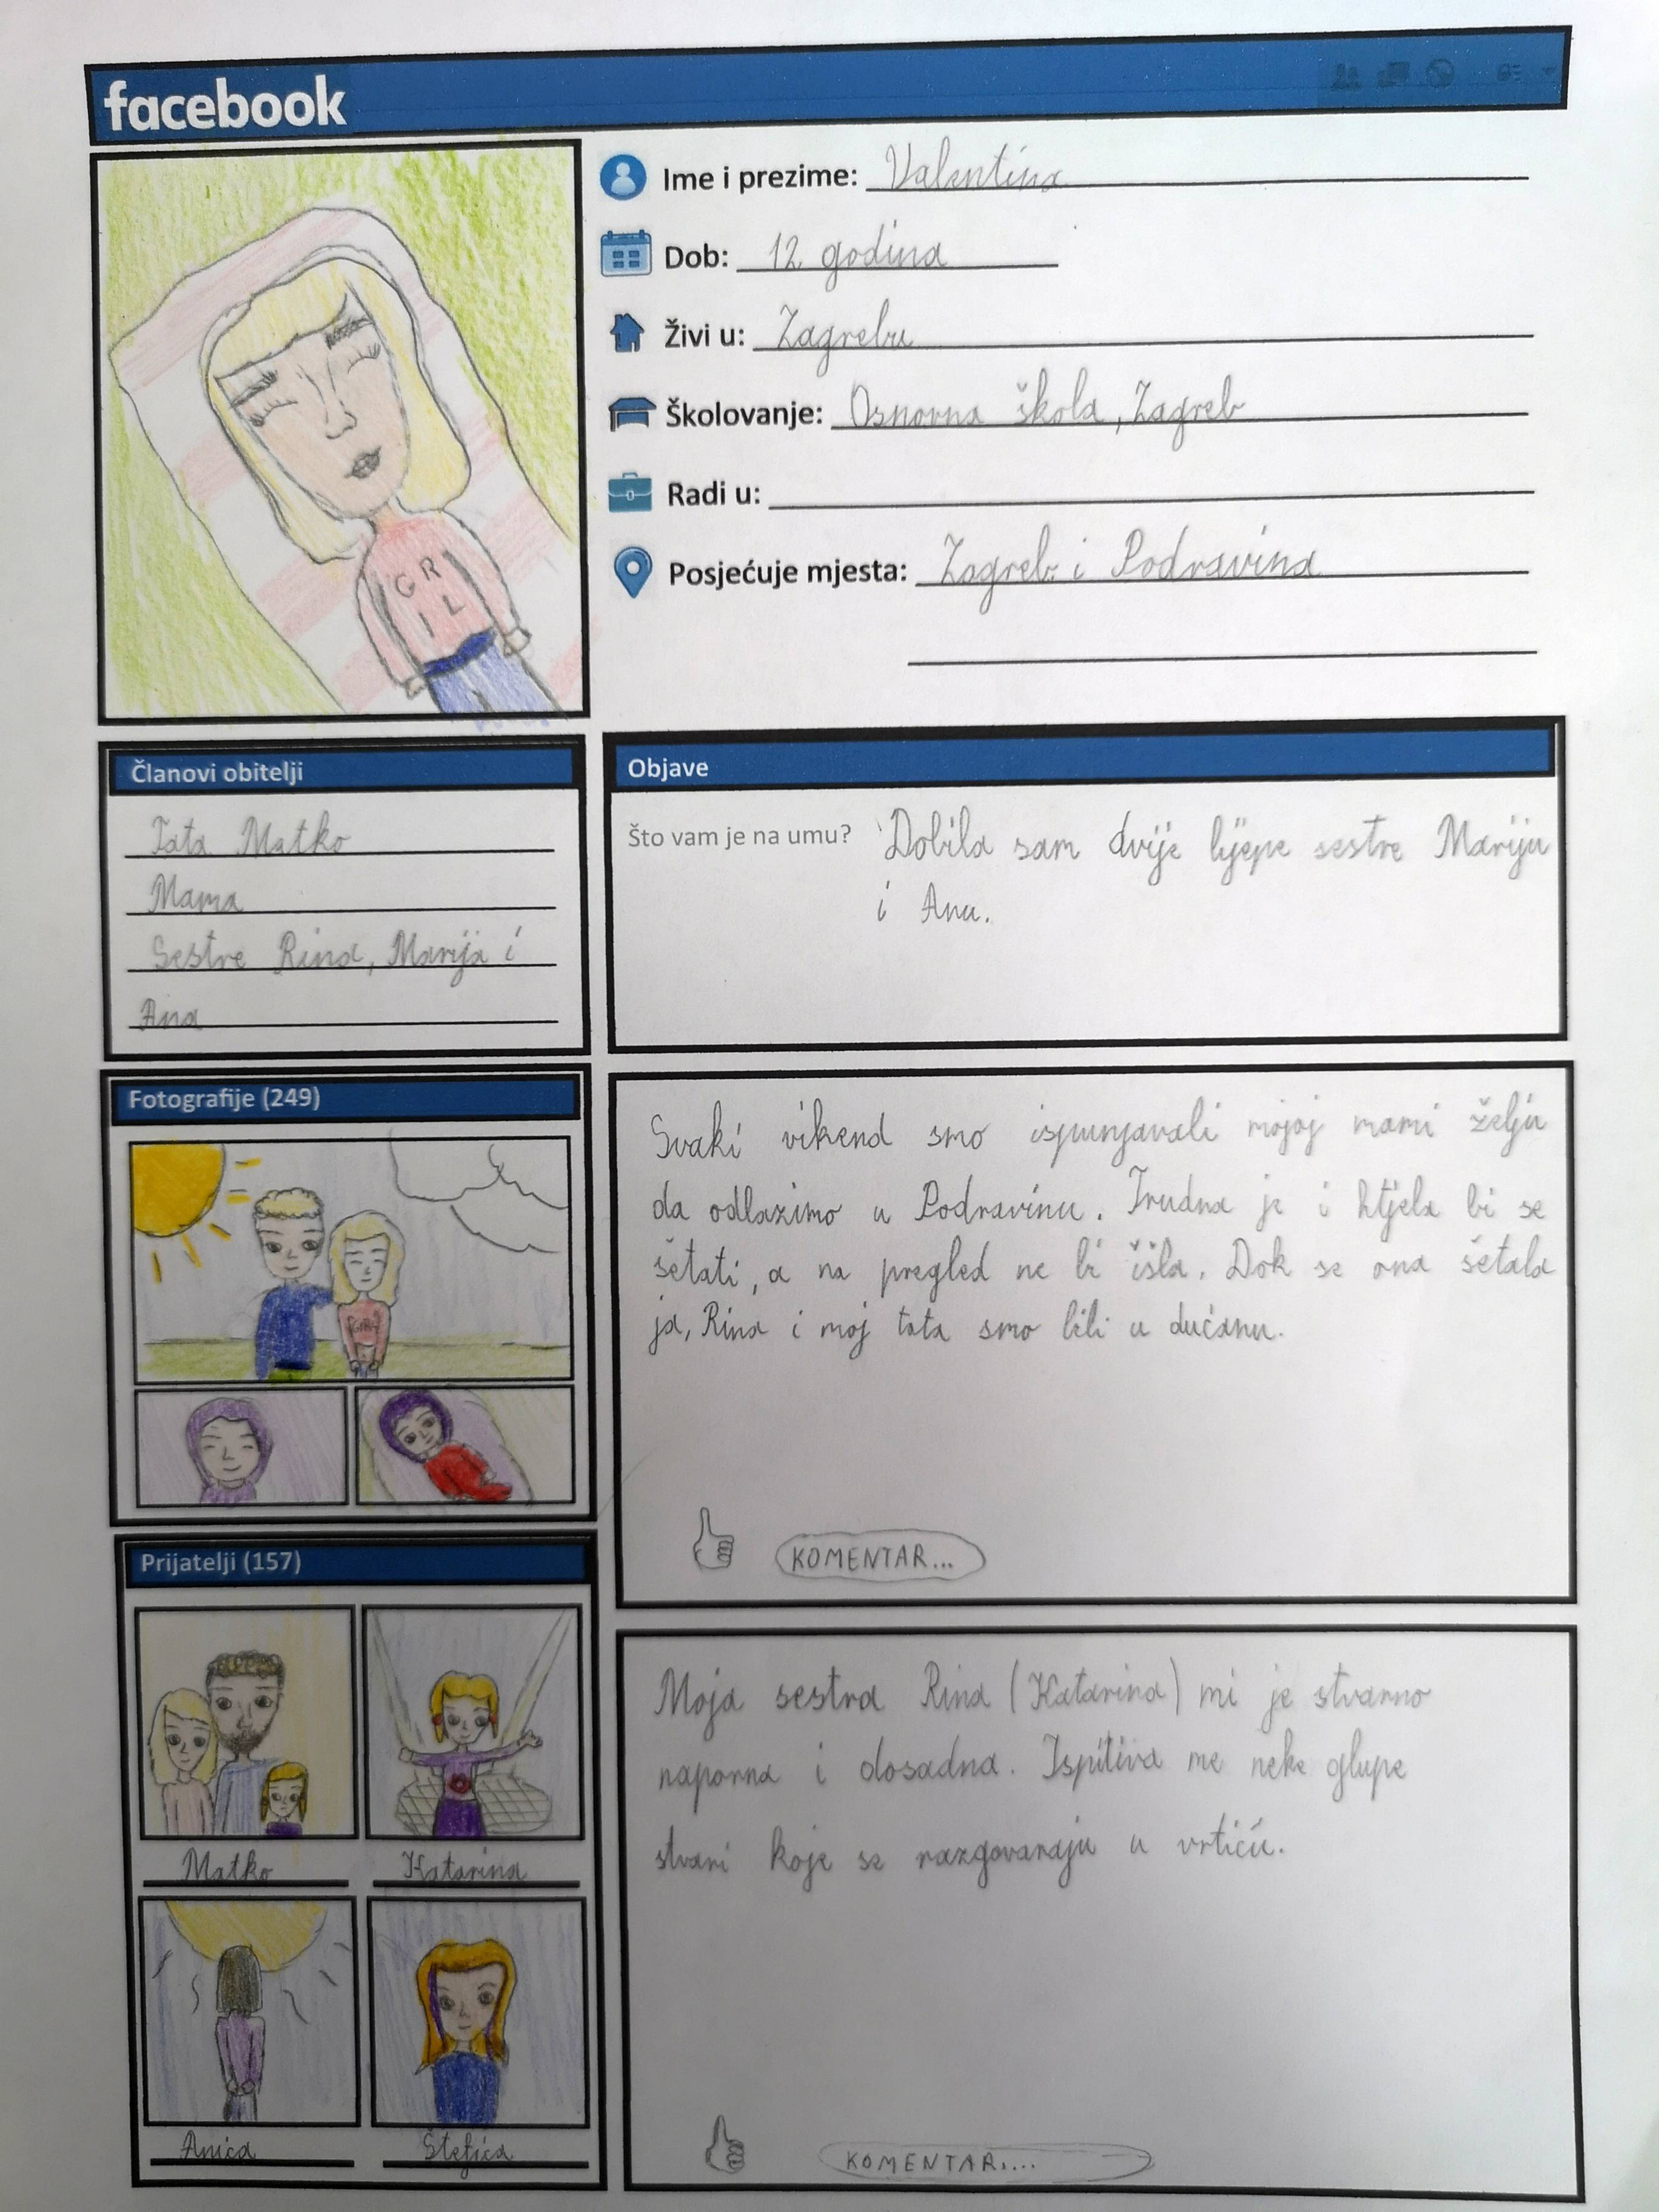 facebook
Ime i prezime: Valentina
Dob: 12 godina
Živi u: Zagrebu
Školovanje: Osnovna škola, Zagreb
Radi u:
Posjećuje mjesta: Zagreb i Podravina
GR
IL
Članovi obitelji
Tata Matko
Mama
Sestre Rina, Marija i
Ana
Objave
Što vam je na umu? Dobila sam dvije lijepe sestre Mariju
i Anu.
Fotografije (249)
Svaki vikend smo ispunjavali mojoj mami želju
da odlazimo u Podravinu. Trudna je i htjela bi se
šetati, a na pregled ne bi išla. Dok se ona šetala
ja, Rina i moj tata smo bili u dućanu.
KOMENTAR...
Prijatelji (157)
Matko
Katarina
Anica
Štefica
Moja sestra Rina (Katarina) mi je stvarno
naporna i dosadna. Ispitiva me neke glupe
stvari koje se razgovaraju u vrtiću.
KOMENTAR....